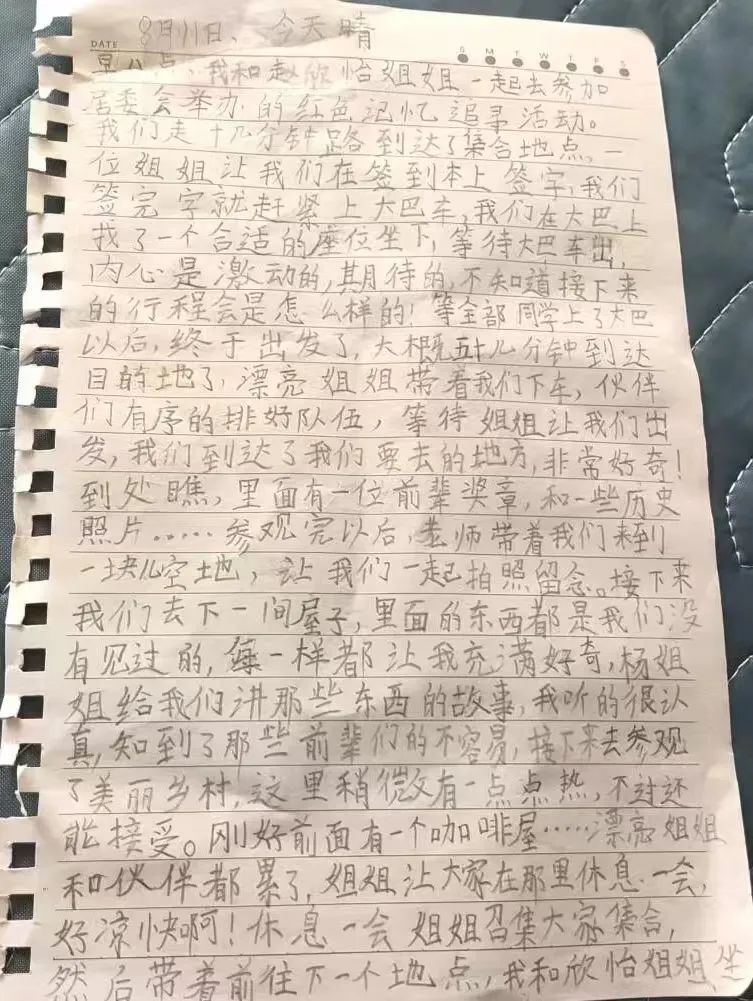 8月11日、今天晴
DATE S M T W T F S
早八点、我和赵欣怡姐姐一起去参加
居委会举办的红色记忆追寻活动。
我们走十几分钟路到达了集合地点,一
位姐姐让我们在签到本上签字,我们
签完字就赶紧上大巴车,我们在大巴上
找了一个合适的座位坐下,等待大巴车出,
内心是激动的,期待的,不知道接下来
的行程会是怎么样的!等全部同学上了大巴
以后,终于出发了,大概五十几分钟到达
目的地了,漂亮姐姐带着我们下车,伙伴
们有序的排好队伍,等待姐姐让我们出
发,我们到达了我们要去的地方,非常好奇!
到处瞧,里面有一位前辈奖章,和一些历史
照片……参观完以后,老师带着我们来到
一块儿空地,让我们一起拍照留念。接下来
我们去下一间屋子,里面的东西都是我们没
有见过的,每一样都让我充满好奇,杨姐
姐给我们讲那些东西的故事,我听的很认
真,知到了那些前辈们的不容易,接下来去参观
了美丽乡村,这里稍微有一点点热,不过还
能接受。刚好前面有一个咖啡屋……漂亮姐姐
和伙伴都累了,姐姐让大家在那里休息一会,
好凉快啊!休息一会姐姐召集大家集合,
然后带着前往下一个地点,我和欣怡姐姐坐